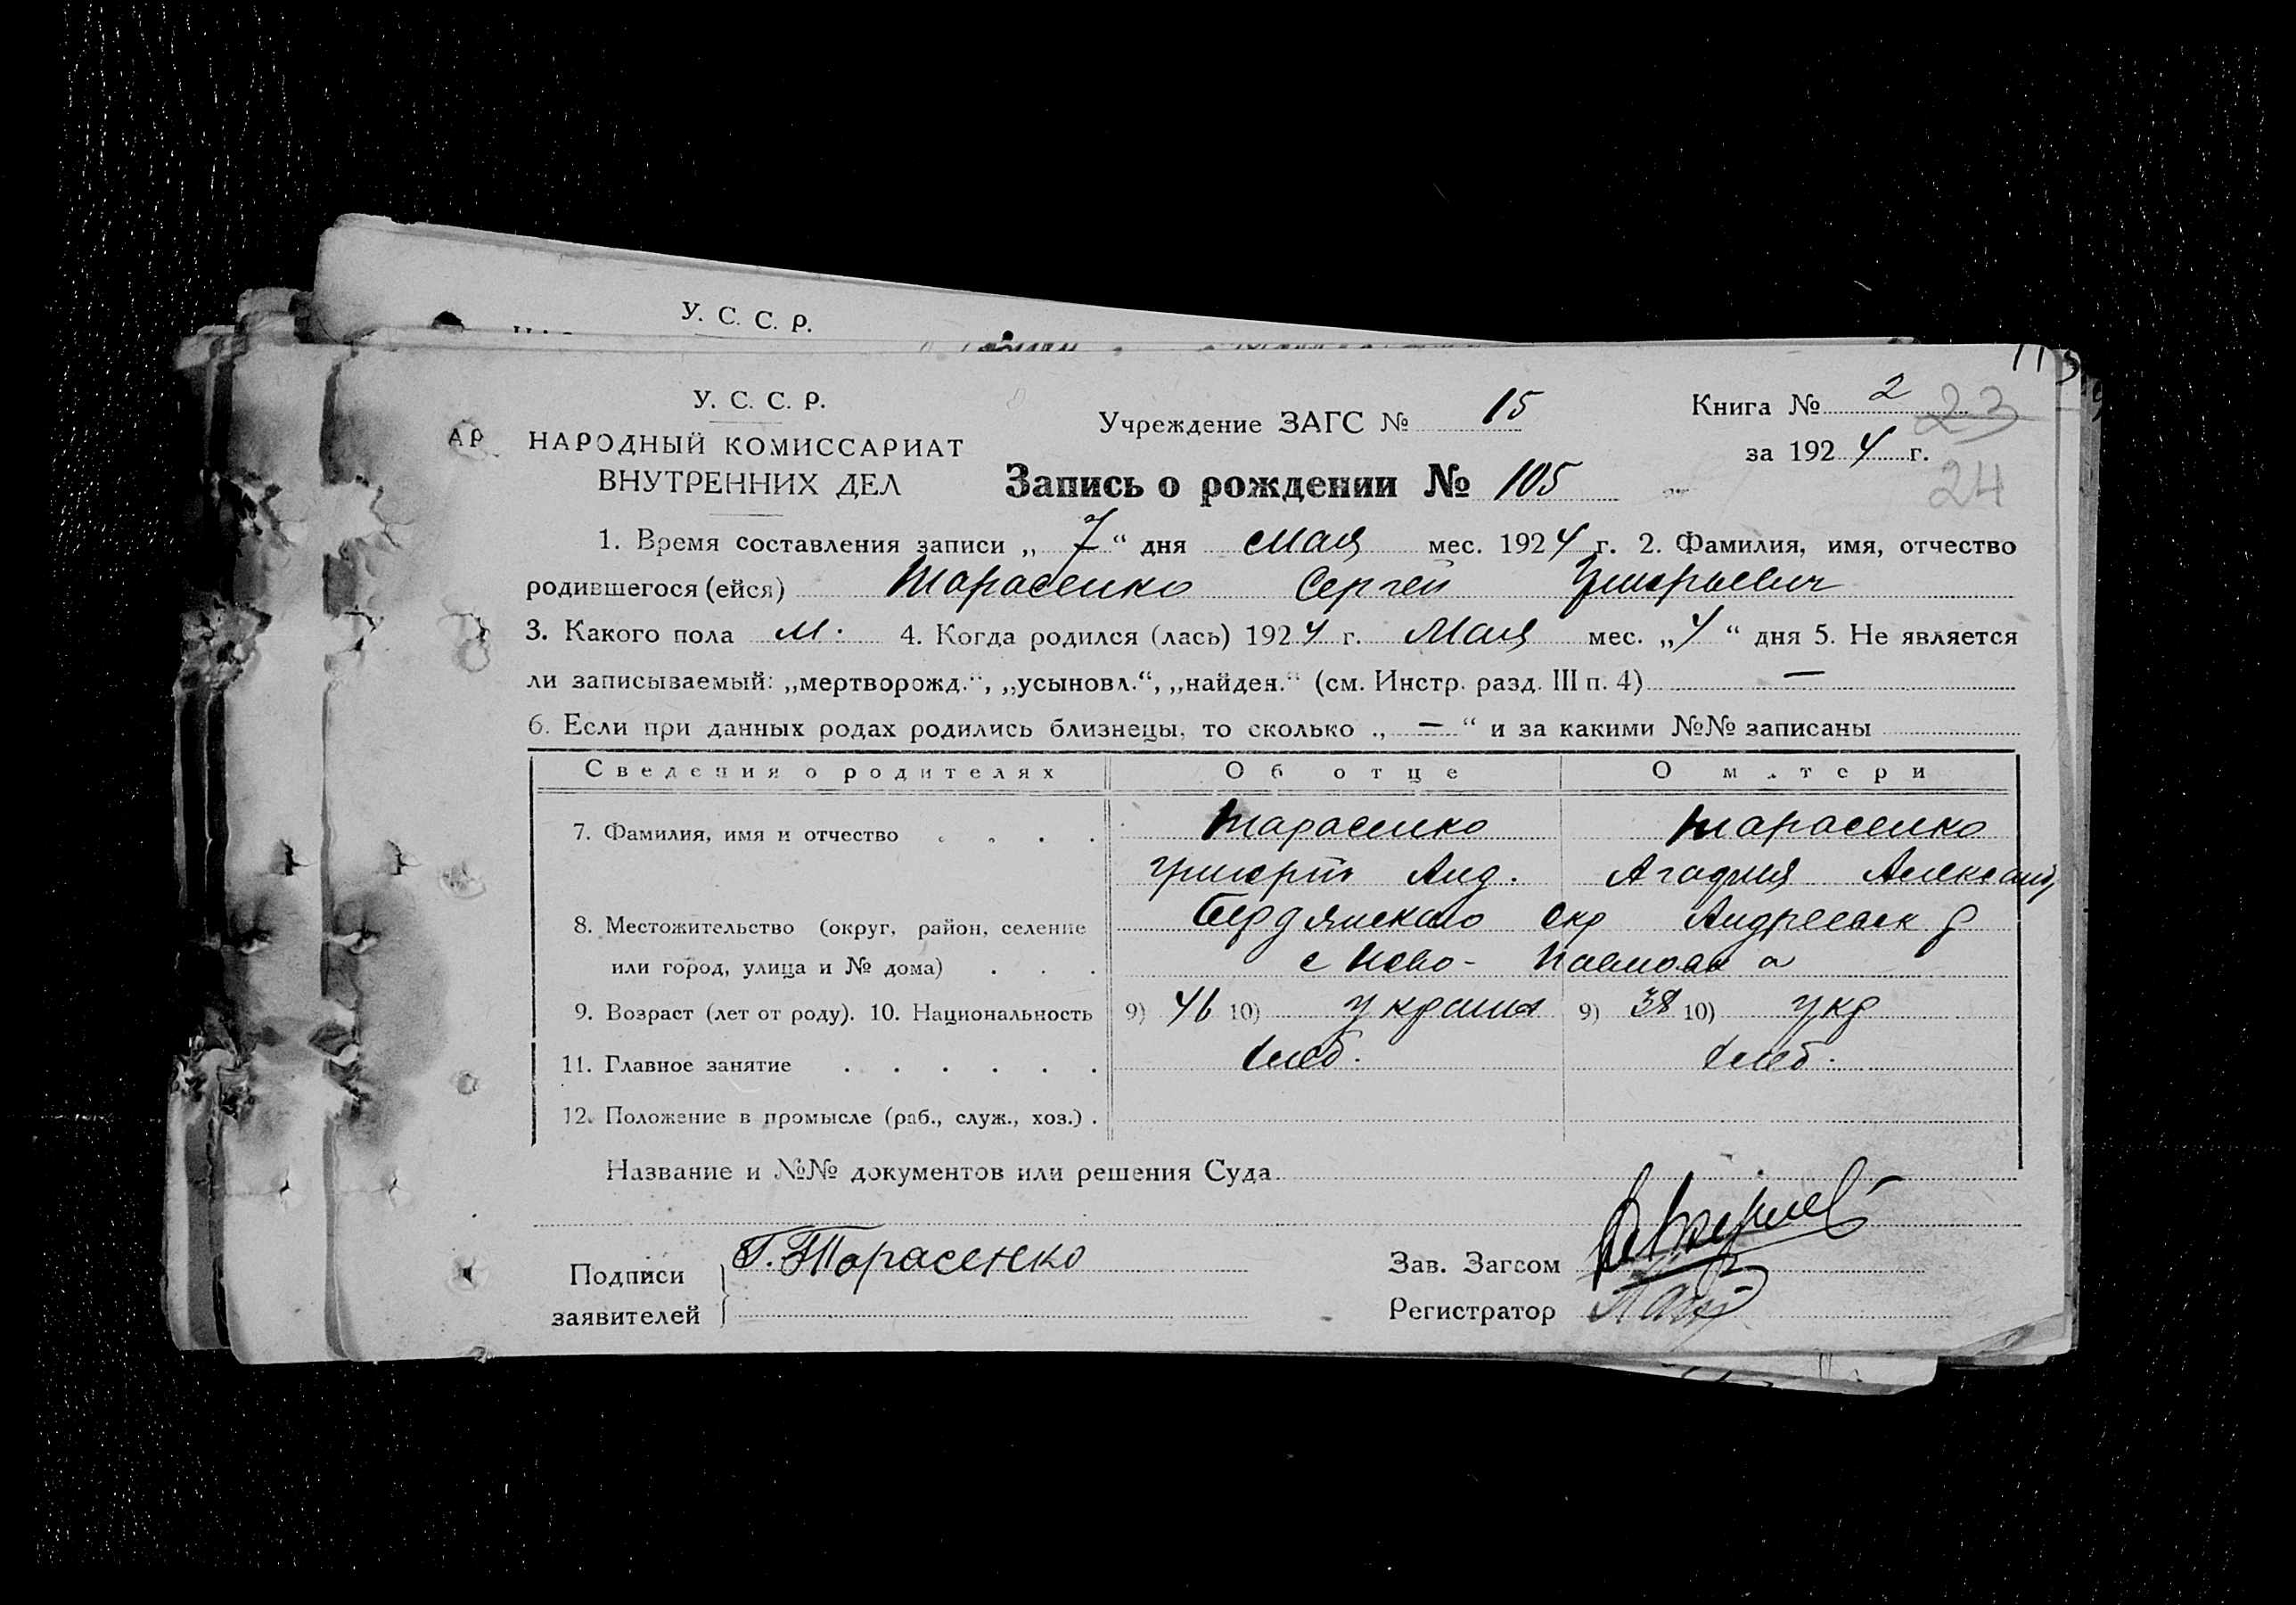 У. С. С. Р.
У. С. С. Р.
НАРОДНЫЙ КОМИССАРИАТ
ВНУТРЕННИХ ДЕЛ
Учреждение ЗАГС № 15
Книга № 2
23
за 1924 г.
24
Запись о рождении № 105
1. Время составления записи „ 7 “ дня мая мес. 1924 г. 2. Фамилия, имя, отчество
родившегося (ейся) Тарасенко Сергей Григорьевич
3. Какого пола м. 4. Когда родился (лась) 1924 г. Мая мес. „4“ дня 5. Не является
ли записываемый: „мертворожд.“, „усыновл.“, „найден.“ (см. Инстр. разд. III п. 4) —
6. Если при данных родах родились близнецы, то сколько „ — “ и за какими №№ записаны
Сведения о родителях Об отце О матери
7. Фамилия, имя и отчество . . . . Тарасенко Тарасенко
Григорий Анд. Агафия Александ
8. Местожительство (округ, район, селение Бердянского Окр Андреевск р
или город, улица и № дома) . . . с Ново-Павловка
9. Возраст (лет от роду). 10. Национальность 9) 46 10) украин 9) 38 10) укр
11. Главное занятие . . . . . . хлеб. хлеб.
12. Положение в промысле (раб., служ., хоз.) .
Название и №№ документов или решения Суда
Подписи
заявителей
Г. Тарасенко
Зав. Загсом
Регистратор